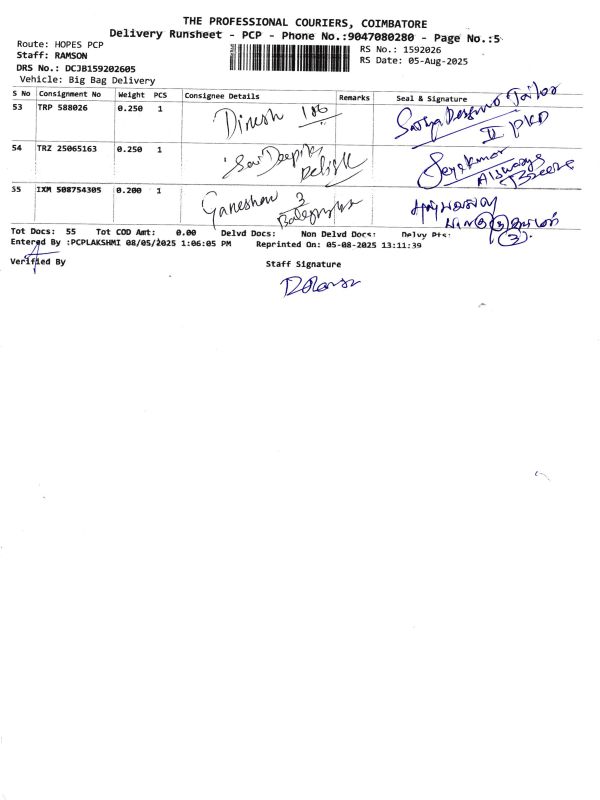 THE PROFESSIONAL COURIERS, COIMBATORE
Delivery Runsheet - PCP - Phone No.:9047080280 - Page No.:5
Route: HOPES PCP
Staff: RAMSON
RS No.: 1592026
DRS No.: DCJB159202605
RS Date: 05-Aug-2025
Vehicle: Big Bag Delivery
S No Consignment No Weight PCS Consignee Details Remarks Seal & Signature
53 TRP 588026 0.250 1 Dinesh 186 Sathya Tailor
II PKD
54 TRZ 25065163 0.250 1 Sai Deepik Jeyakumar
55 IXM 508754305 0.200 1 Ganeshan 3
Tot Docs: 55 Tot COD Amt: 0.00 Delvd Docs: Non Delvd Docs: Delvy Pts:
3
Entered By :PCPLAKSHMI 08/05/2025 1:06:05 PM Reprinted On: 05-08-2025 13:11:39
Verified By
Staff Signature